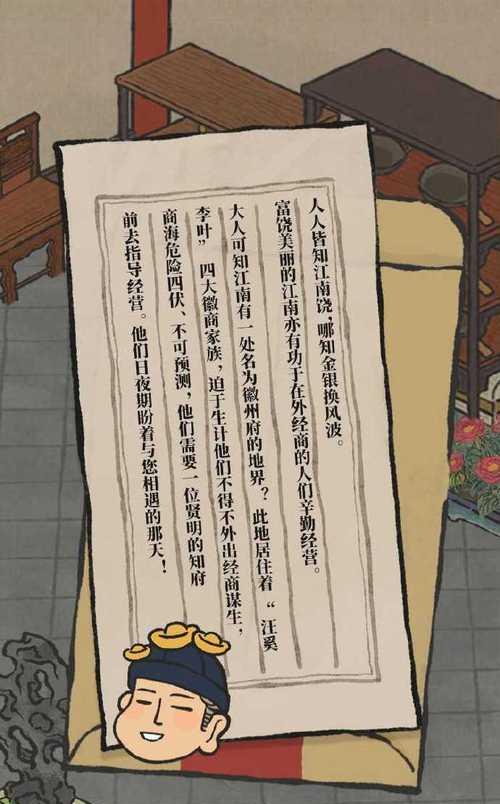 人人皆知江南饶，哪知金银换风波。
富饶美丽的江南亦有功于在外经商的人们辛勤经营。
大人可知江南有一处名为徽州府的地界？此地居住着“汪奚
李叶”四大徽商家族，迫于生计他们不得不外出经商谋生，
商海危险四伏、不可预测，他们需要一位贤明的知府
前去指导经营。他们日夜期盼着与您相遇的那天！